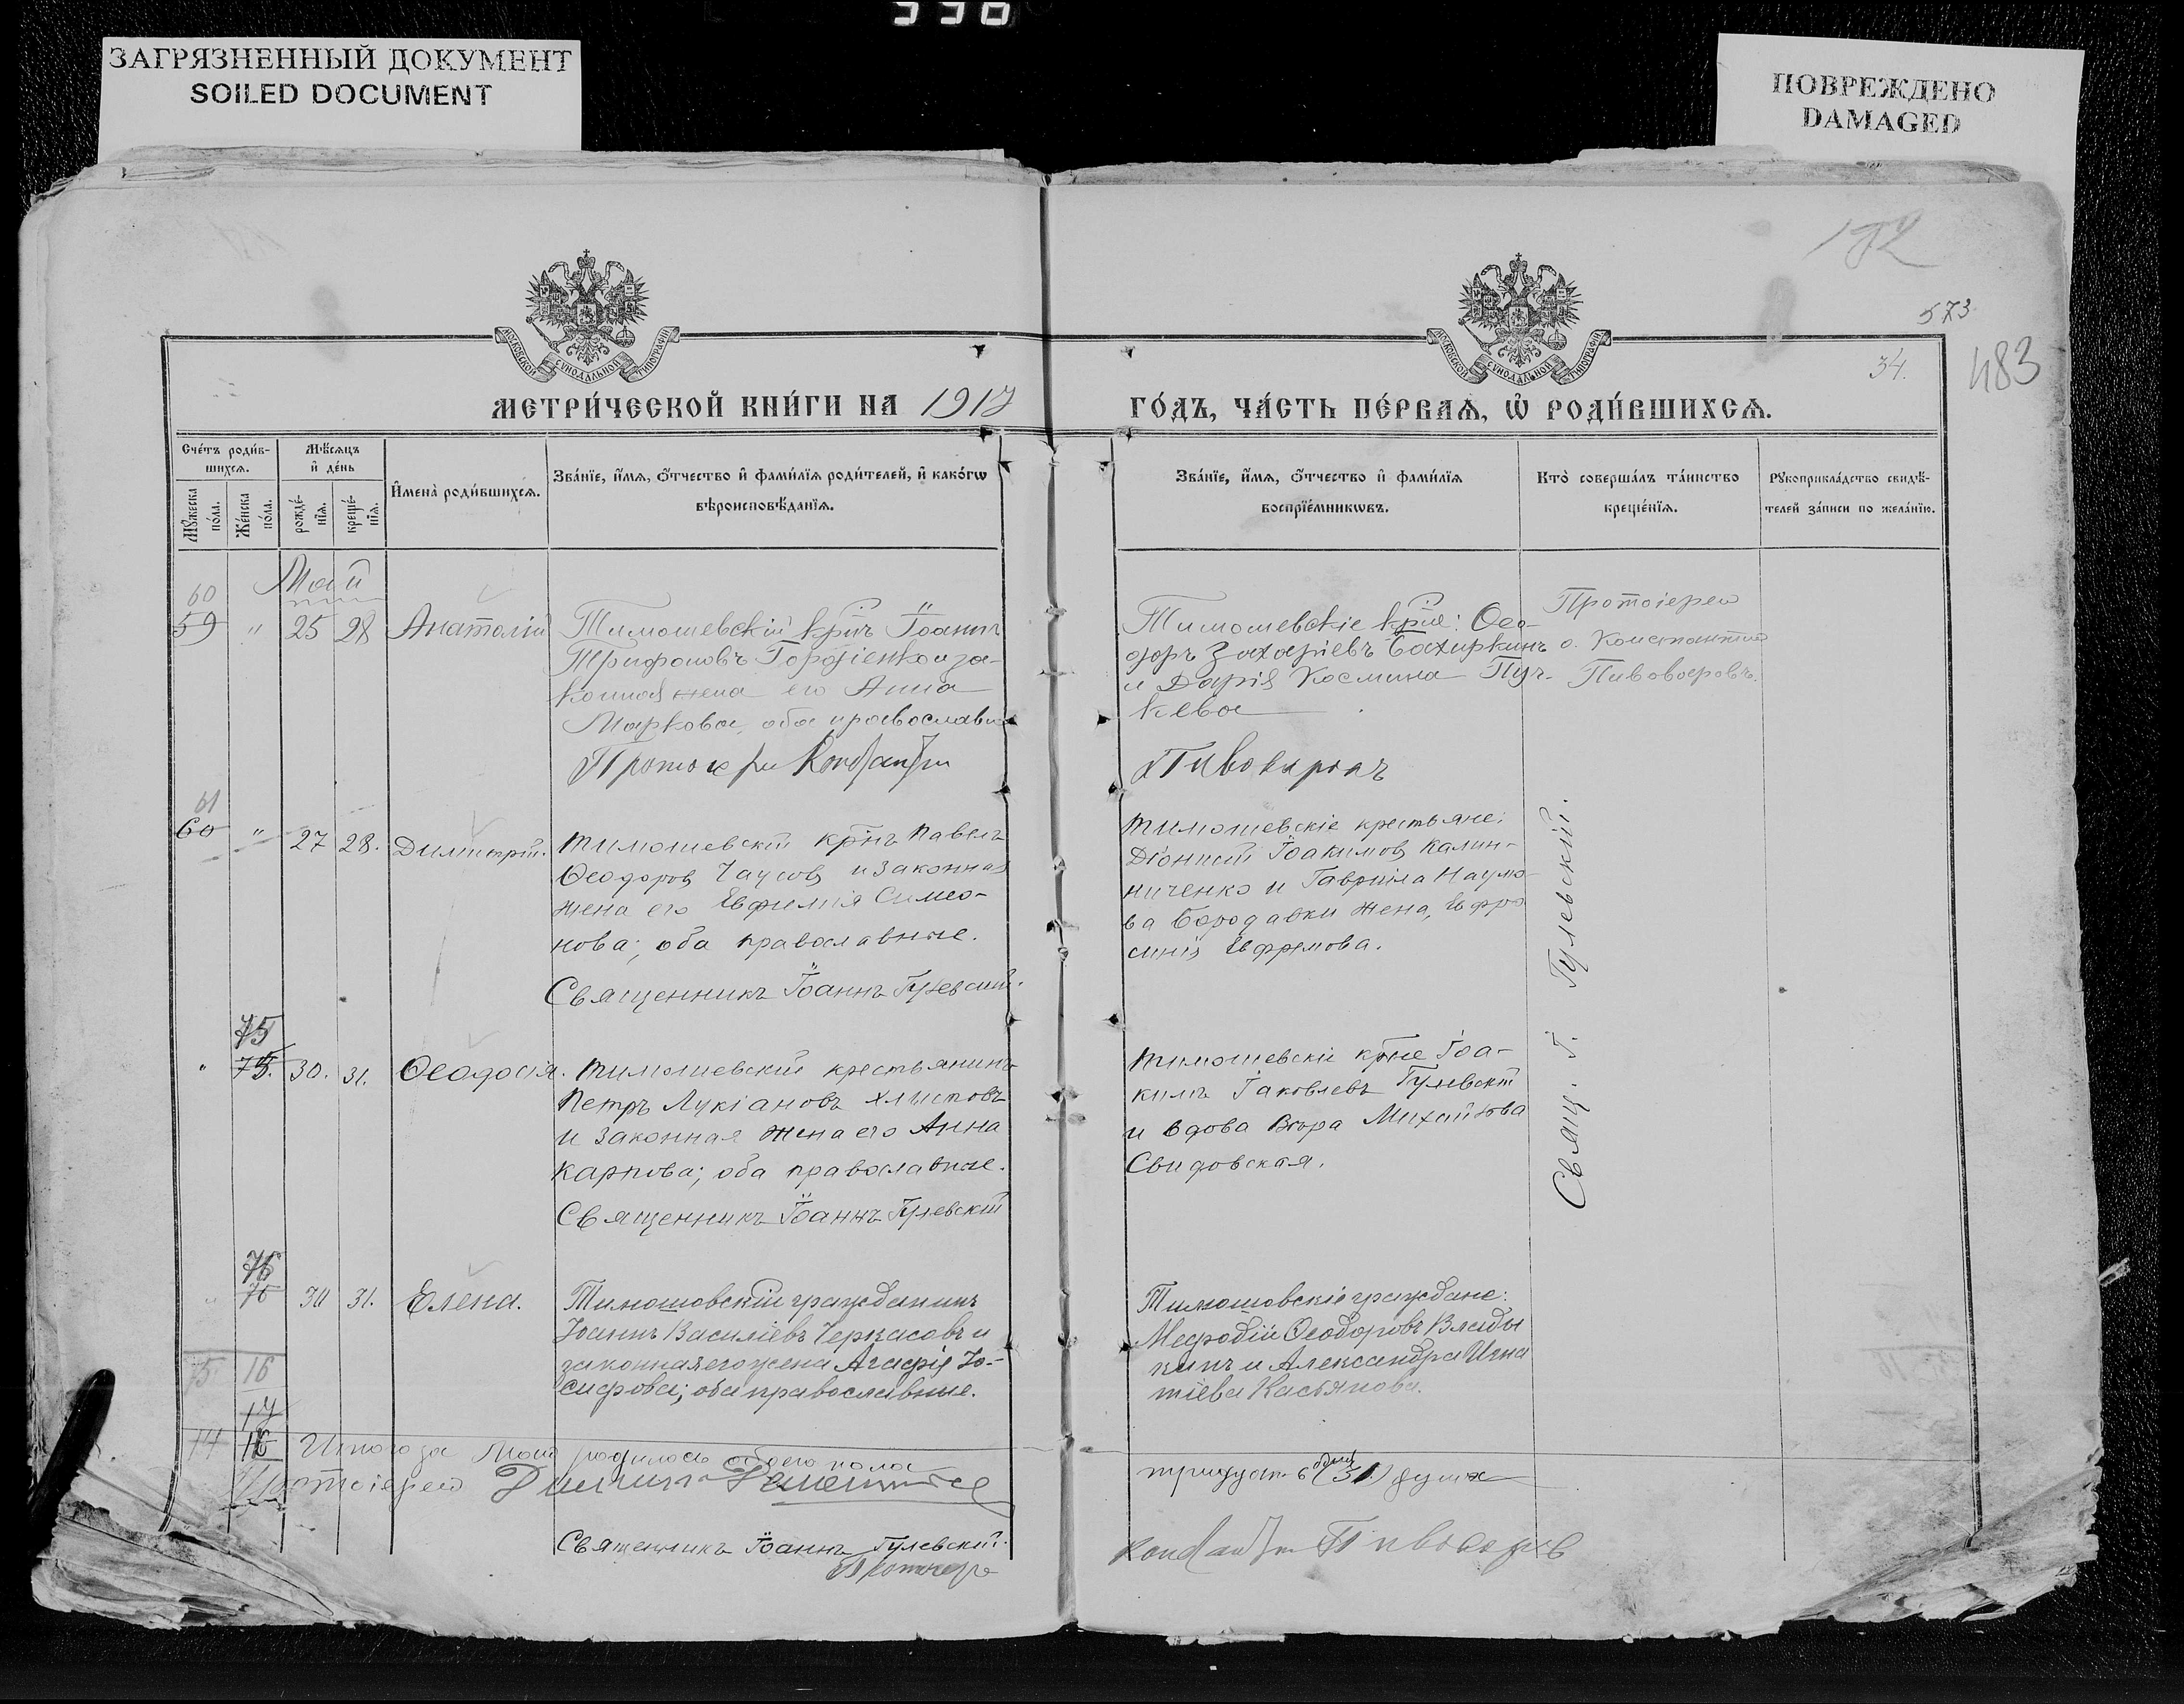 336
ЗАГРЯЗНЕННЫЙ ДОКУМЕНТ
SOILED DOCUMENT
ПОВРЕЖДЕНО
DAMAGED
573
483
34.
МОСКОВСКОЙ СѴНОДАЛЬНОЙ ТИПОГРАФІИ
МОСКОВСКОЙ СѴНОДАЛЬНОЙ ТИПОГРАФІИ
МЕТРИ́ЧЕСКОЙ КНИ́ГИ НА 1917
ГО́ДЪ, ЧА́СТЬ ПЕ́РВАѦ, Ѡ҆ РОДИ́ВШИХСѦ.
Сче́тъ роди́в-
шихсѧ.
Мꙋ́жеска по́ла.
Же́нска по́ла.
Мѣ́сѧцъ
и҆ де́нь
рожде́-
нїѧ.
креще́-
нїѧ.
И҆мена̀ роди́вшихсѧ.
Зва́нїе, и҆́мѧ, ѻ҆́тчество и҆ фами́лїѧ роди́телей, и҆ како́гѡ
вѣроисповѣ́данїѧ.
Зва́нїе, и҆́мѧ, ѻ҆́тчество и҆ фами́лїѧ
воспрїе́мникѡвъ.
Кто̀ соверша́лъ та́инство
креще́нїѧ.
Рꙋкоприкла́дство свидѣ́-
телей за́писи по жела́нїю.
Май
60
59 " 25 28 Анатолій
Тимошевскій крнъ Іоаннъ
Трифоновъ Гордіенко и за-
конная жена его Анна
Маркова, оба православн
Протоіерей Константин
Тимошевскіе крне: Ѳео-
доръ Захаріевъ Бахиркинъ
и Дарія Космина Пуч-
кева
Пивоваровъ
Протоіерей
о. Константин
Пивоваровъ.
61
60 " 27 28. Димитрій.
Тимошевскій крнъ Павелъ
Ѳеодоровъ Чаусовъ и законная
жена его Евфимія Симео-
нова; оба православные.
Священникъ Іоаннъ Гулевскій.
Тимошевскіе крестьяне:
Діонисій Іоакимовъ Калин-
ниченко и Гавріила Наумо-
ва Бородавки жена, Евфро
синія Ефремова.
Свящ. І. Гулевскій.
75
75. 30. 31. Ѳеодосія.
Тимошевскій крестьянинъ
Петръ Лукіановъ Хлыповъ
и законная жена его Анна
Карпова; оба православные.
Священникъ Іоаннъ Гулевскій
Тимошевскіе крне Іоа-
кимъ Іаковлевъ Гулевскій
и вдова Вѣра Михайлова
Свидовская.
76
76 30 31. Елена.
Тимошовскій гражданинъ
Іоаннъ Василіевъ Черкасовъ и
законная его жена Агафія Іо-
сифова; оба православные.
Тимошовскіе граждане:
Меѳодій Ѳеодоровъ Влады
кинъ и Александра Игна
тіева Касьянова.
15 16
17
14 16 Итого за Май родилось обоего пола
тридцать один (31) душа
Протоіерей
Священникъ Іоаннъ Гулевскій.
Протоіерей
Константин Пивоваров